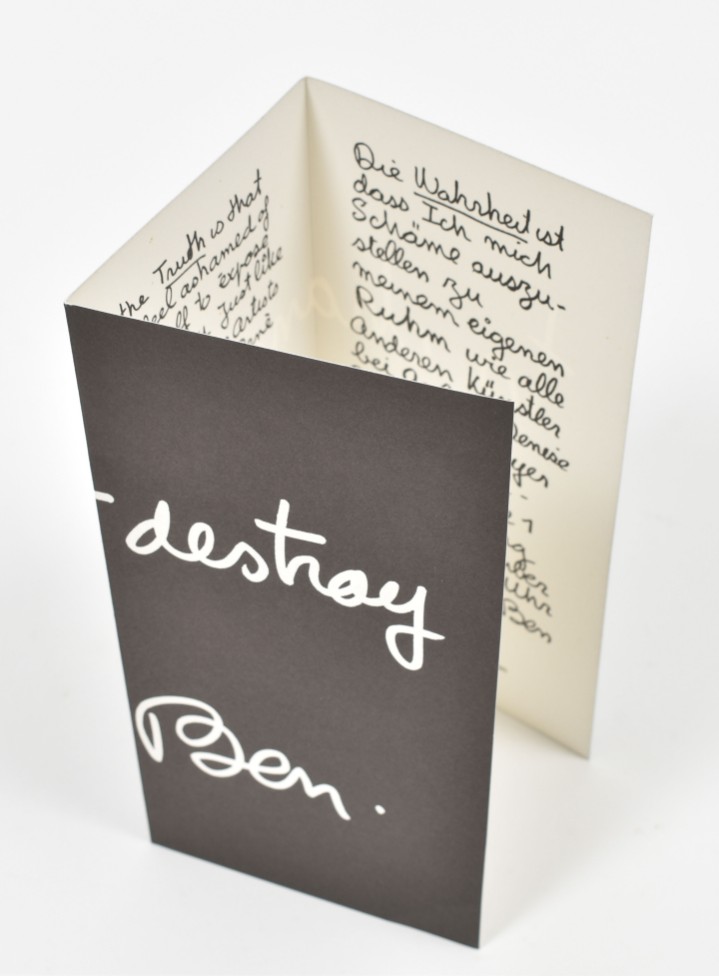 the Truth is that
feel ashamed of
to expose
Just like
Artists
Die Wahrheit ist
dass Ich mich
Schäme auszu-
stellen zu
meinem eigenen
Ruhm wie alle
anderen Künstler
bei
Uhr
Ben
- destroy
Ben.